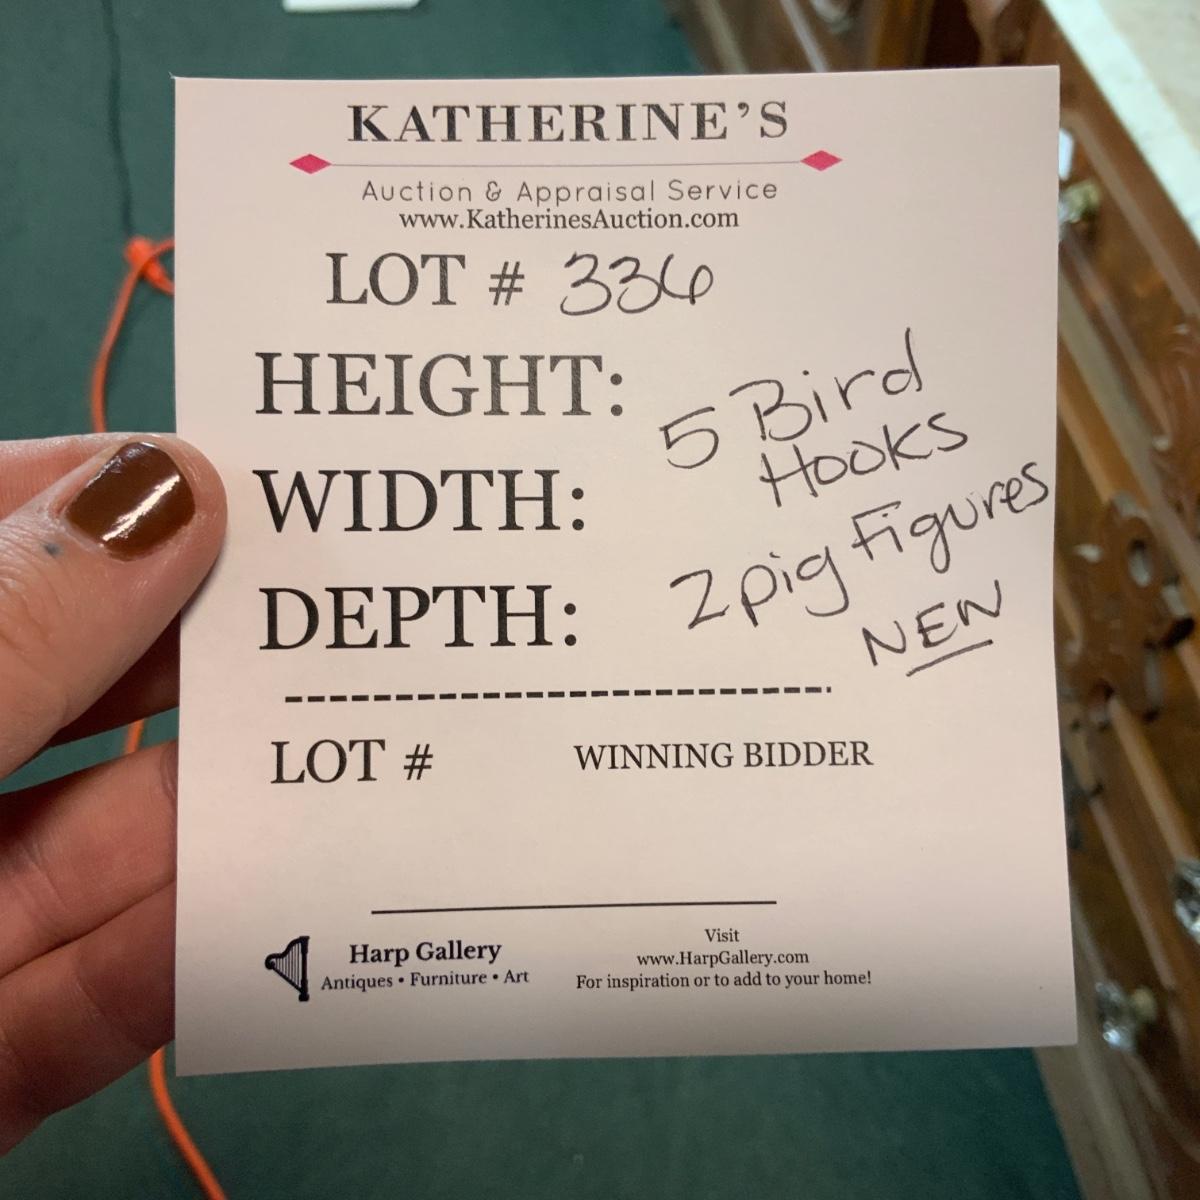 KATHERINE'S
Auction & Appraisal Service
www.KatherinesAuction.com
LOT # 336
HEIGHT:
WIDTH:
DEPTH:
5 Bird
Hooks
2 pig Figures
NEW
LOT #
WINNING BIDDER
Harp Gallery
Antiques • Furniture • Art
Visit
www.HarpGallery.com
For inspiration or to add to your home!